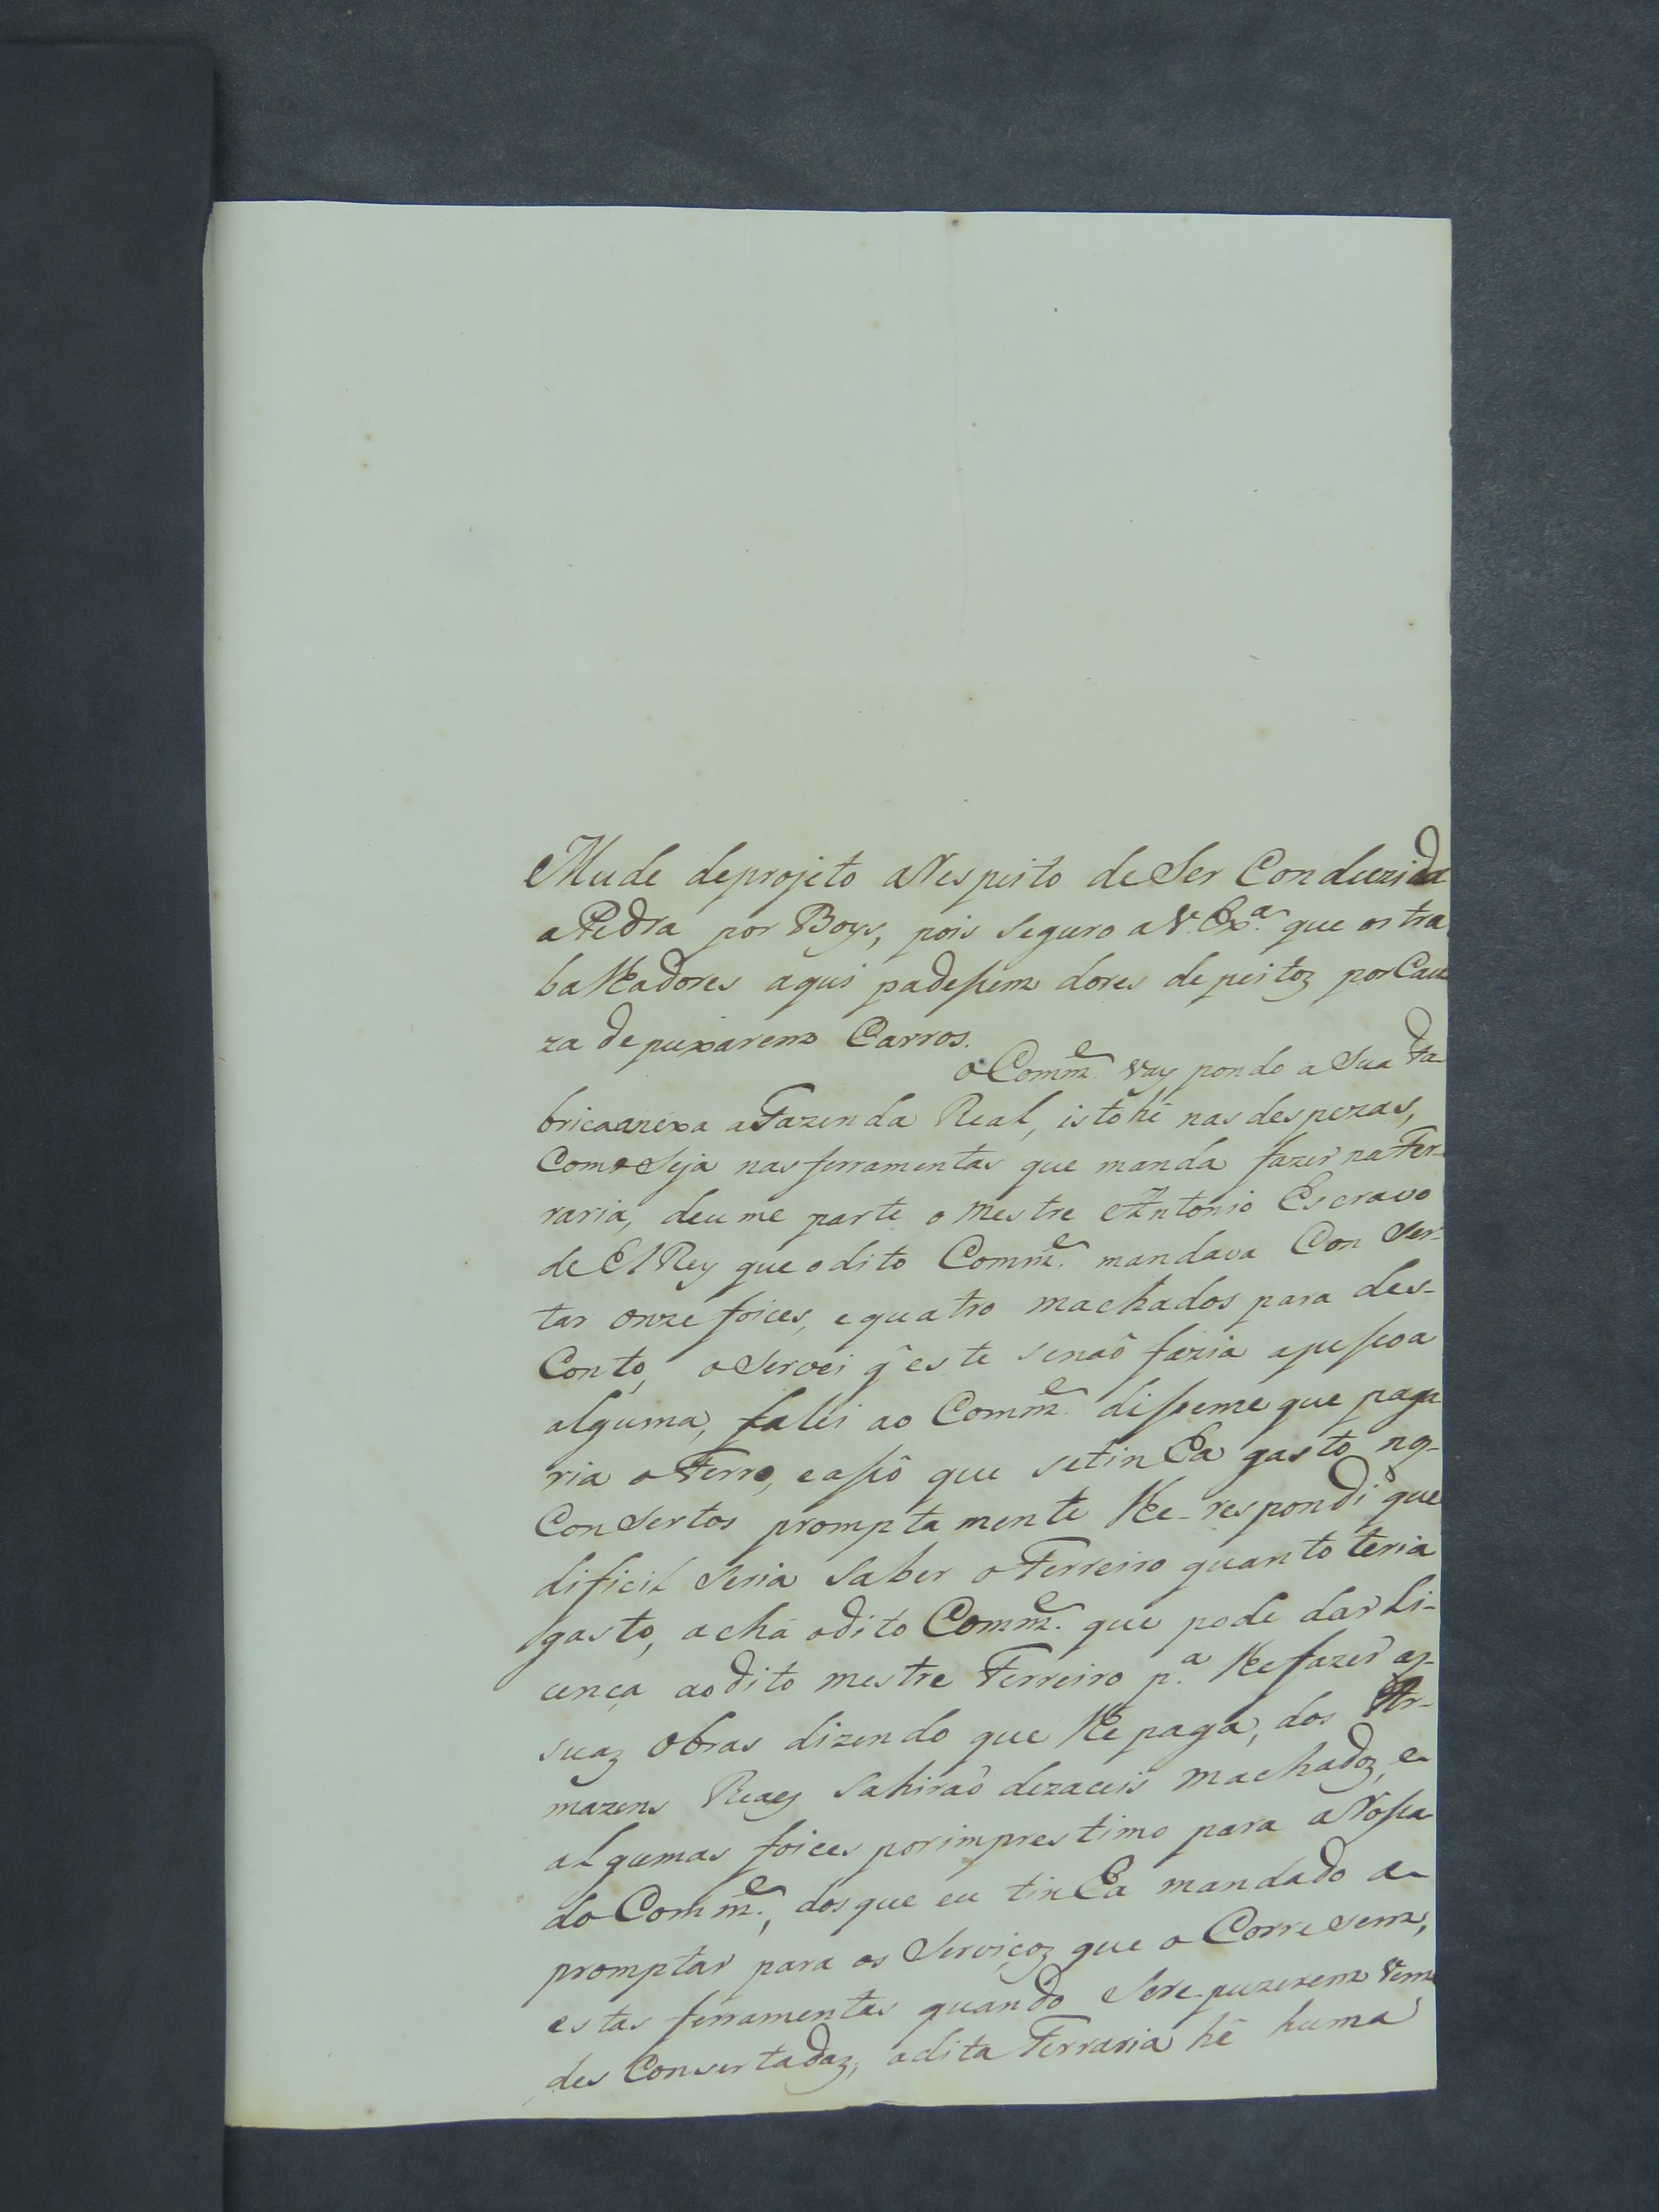 Mude deprojeto aRespeito deSer Conduzida
aPedra por Boys, pois seguro aV.Exª. que os tra
balhadores aqui padessem dores de peitoz porCau
za depuxarem Carros.
oComm.e Vay pondo a Sua Fa-
bricaanexa aFazenda Real, isto hé nas despezas,
ComoSeja nas ferramentas que manda fazer naFer-
raria, deume parte o Mestre Antonio Escravo
de ElRey que odito Comm.e mandava ConSer-
tar onze foices, equatro machados para des-
Conto, oServei q̃ este senaõ fazia apessoa
alguma, falei ao Comm.e disseme que paga
ria oFerro, easso que setinha gasto noz
ConSertos promptamente lhe-respondi que
dificil Seria Saber oFerreiro quanto teria
gasto, achá odito Comm.e que pode dar Li-
cença aodito mestre Ferreiro p.ª lhefazer az
suaz Obras dizendo que lhe paga, dos Ar-
mazens Reaes Sahiraõ dezaceis Machadoz, e
algumas foices porimprestimo para aRossa
do Comm.e, dosque eu tinha mandado a-
promptar para os Serviçoz que oCorresem,
estas ferramentas quando Sere-puzerem Vem
des Consertadaz, adita Ferraria hé huma